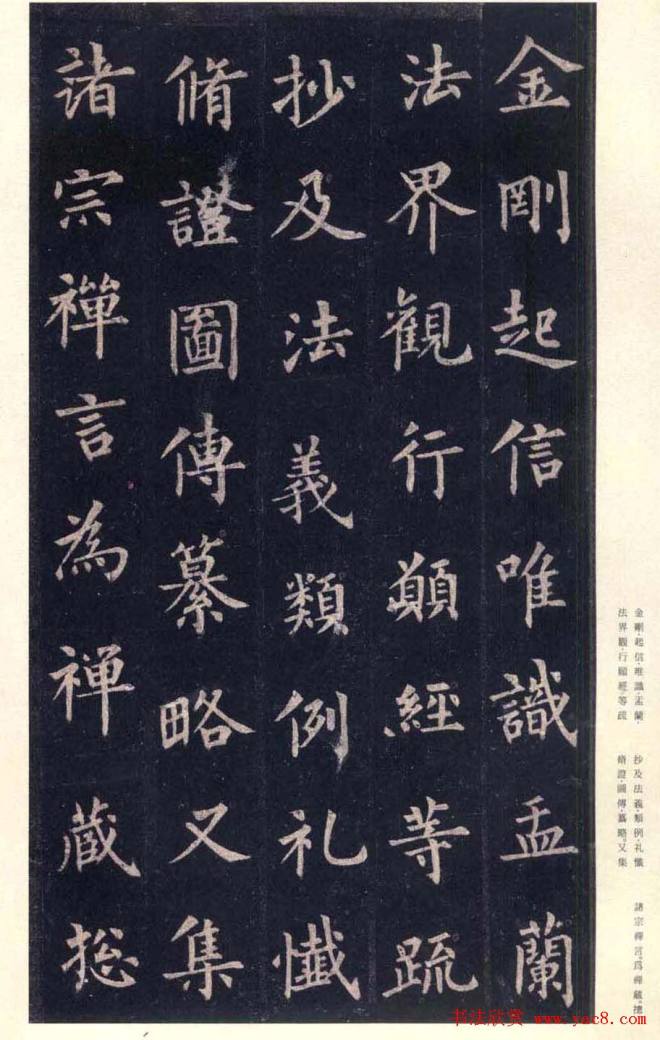 金剛起信唯識盂蘭
法界觀行願經等疏
抄及法義類例礼懺
脩證圖傳纂略又集
諸宗禪言為禪蔵摠
金剛·起信·唯識·盂蘭·
法界觀·行願經·等疏
抄及法義·類例·礼懺
脩證·圖傳·纂略。又集
諸宗禪言。爲禪藏。摠
书法欣赏 www.yac8.com